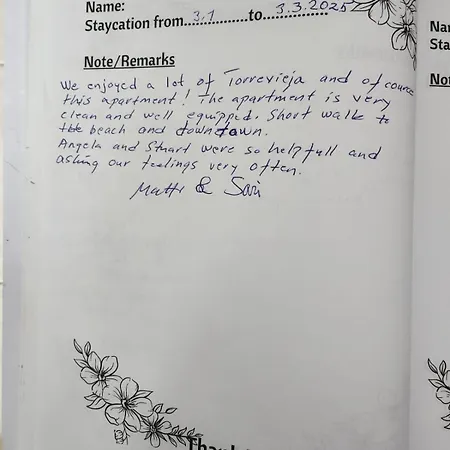 Name:
Staycation from 3.1 to 3.3.2025
Note/Remarks
We enjoyed a lot of Torrevieja and of course
this apartment! The apartment is very
clean and well equipped. Short walk to
the beach and downtown.
Angela and Stuart were so helpfull and
asking our feelings very often.
Matti & Sari
Nar
Sta
Not
Thank